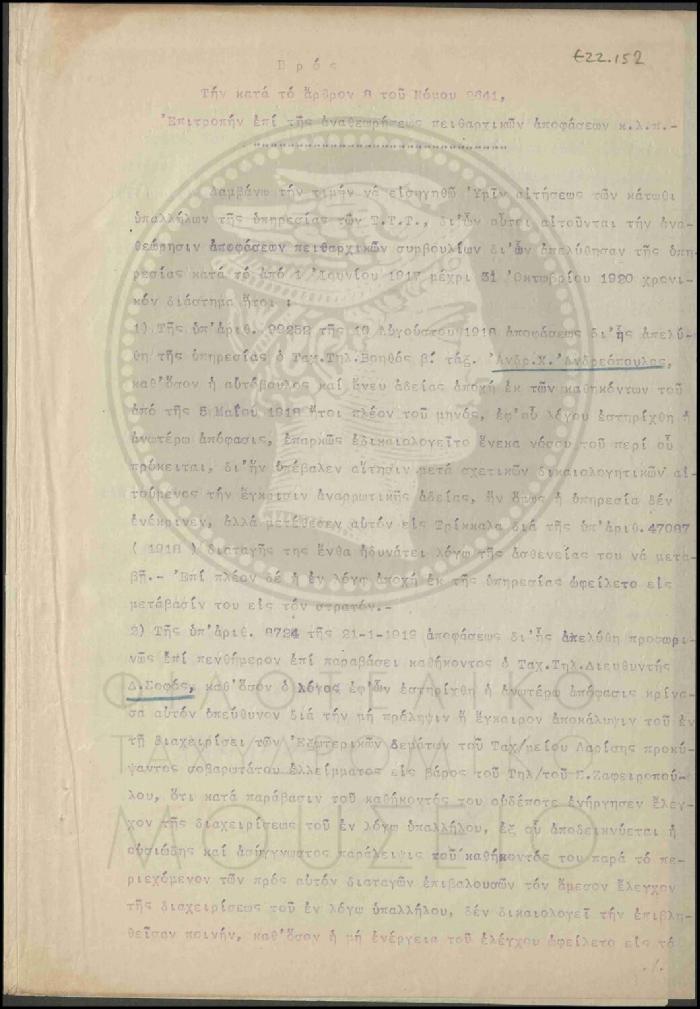 €22.152
Πρός
Τήν κατά τό ἄρθρον 8 τοῦ Νόμου 2641,
Ἐπιτροπήν ἐπί τῆς ἀναθεωρήσεως πειθαρχικῶν ἀποφάσεων κ.λ.π.-
Λαμβάνω τήν τιμήν νά εἰσηγηθῶ Ὑμῖν αἰτήσεως τῶν κάτωθι
ὑπαλλήλων τῆς ὑπηρεσίας τῶν Τ.Τ.Τ., δι'ὧν οὗτοι αἰτοῦνται τήν ἀνα-
θεώρησιν ἀποφάσεων πειθαρχικῶν συμβουλίων δι'ὧν ἀπελύθησαν τῆς ὑπη-
ρεσίας κατά τό ἀπό 1 Ἰουνίου 1917 μέχρι 31 Ὀκτωβρίου 1920 χρονι-
κόν διάστημα ἤτοι :
1) Τῆς ὑπ'ἀριθ. 99252 τῆς 10 Αὐγούστου 1918 ἀποφάσεως δι'ἧς ἀπελύ-
θη τῆς ὑπηρεσίας ὁ Ταχ.Τηλ.Βοηθός β! τάξ. Ἀνδρ.Χ.Ἀνδρεόπουλος,
καθ'ὅσον ἡ αὐτόβουλος καί ἄνευ ἀδείας ἀποχή ἐκ τῶν καθηκόντων του
ἀπό τῆς 5 Μαΐου 1918 ἤτοι πλέον τοῦ μηνός, ἐφ'οὗ λόγου ἐστηρίχθη ἡ
ἀνωτέρω ἀπόφασις, ἐπαρκῶς ἐδικαιολογεῖτο ἕνεκα νόσου τοῦ περί οὗ
πρόκειται, δι'ἥν ὑπέβαλεν αἴτησιν μετά σχετικῶν δικαιολογητικῶν αἰ-
τούμενος τήν ἔγκρισιν ἀναρρωτικῆς ἀδείας, ἥν ὅμως ἡ ὑπηρεσία δέν
ἐνέκρινεν, ἀλλά μετέθεσεν αὐτόν εἰς Τρίκκαλα διά τῆς ὑπ'ἀριθ.47087
( 1918 ) διαταγῆς της ἔνθα ἠδυνάτει λόγῳ τῆς ἀσθενείας του νά μετα-
βῇ.- Ἐπί πλέον δέ ἡ ἐν λόγῳ ἀποχή ἐκ τῆς ὑπηρεσίας ὠφείλετο εἰς
μετάβασίν του εἰς τόν στρατόν.-
2) Τῆς ὑπ'ἀριθ. 8724 τῆς 21-1-1919 ἀποφάσεως δι'ἧς ἀπελύθη προσωρι-
νῶς ἐπί πενθήμερον ἐπί παραβάσει καθήκοντος ὁ Ταχ.Τηλ.Διευθυντής
Δ.Σοφός, καθ'ὅσον ὁ λόγος ἐφ'ὧν ἐστηρίχθη ἡ ἀνωτέρω ἀπόφασις κρίνα-
σα αὐτόν ὑπεύθυνον διά τήν μή πρόληψιν ἤ ἔγκαιρον ἀποκάλυψιν τοῦ ἐν
τῇ διαχειρίσει τῶν Ἐξωτερικῶν δεμάτων τοῦ Ταχ/μείου Λαρίσης προκύ-
ψαντος σοβαρωτάτου ἐλλείμματος εἰς βάρος τοῦ Τηλ/τοῦ Σ.Ζαφειροπού-
λου, ὅτι κατά παράβασιν τοῦ καθήκοντός του οὐδέποτε ἐνήργησεν ἔλεγ-
χον τῆς διαχειρίσεως τοῦ ἐν λόγῳ ὑπαλλήλου, ἐξ οὗ ἀποδεικνύεται ἡ
οὐσιώδης καί ἀσύγγνωστος παράλειψις τοῦ καθήκοντός του παρά τό πε-
ριεχόμενον τῶν πρός αὐτόν διαταγῶν ἐπιβαλουσῶν τόν ἄμεσον ἔλεγχον
τῆς διαχειρίσεως τοῦ ἐν λόγῳ ὑπαλλήλου, δέν δικαιολογεῖ τήν ἐπιβλη-
θεῖσαν ποινήν, καθ'ὅσον ἡ μή ἐνέργεια τοῦ ἐλέγχου ὠφείλετο εἰς τό
./.
ΦΙΛΟΤΕΛΙΚΟ
ΤΑΧΥΔΡΟΜΙΚΟ
ΜΟΥΣΕΙΟ